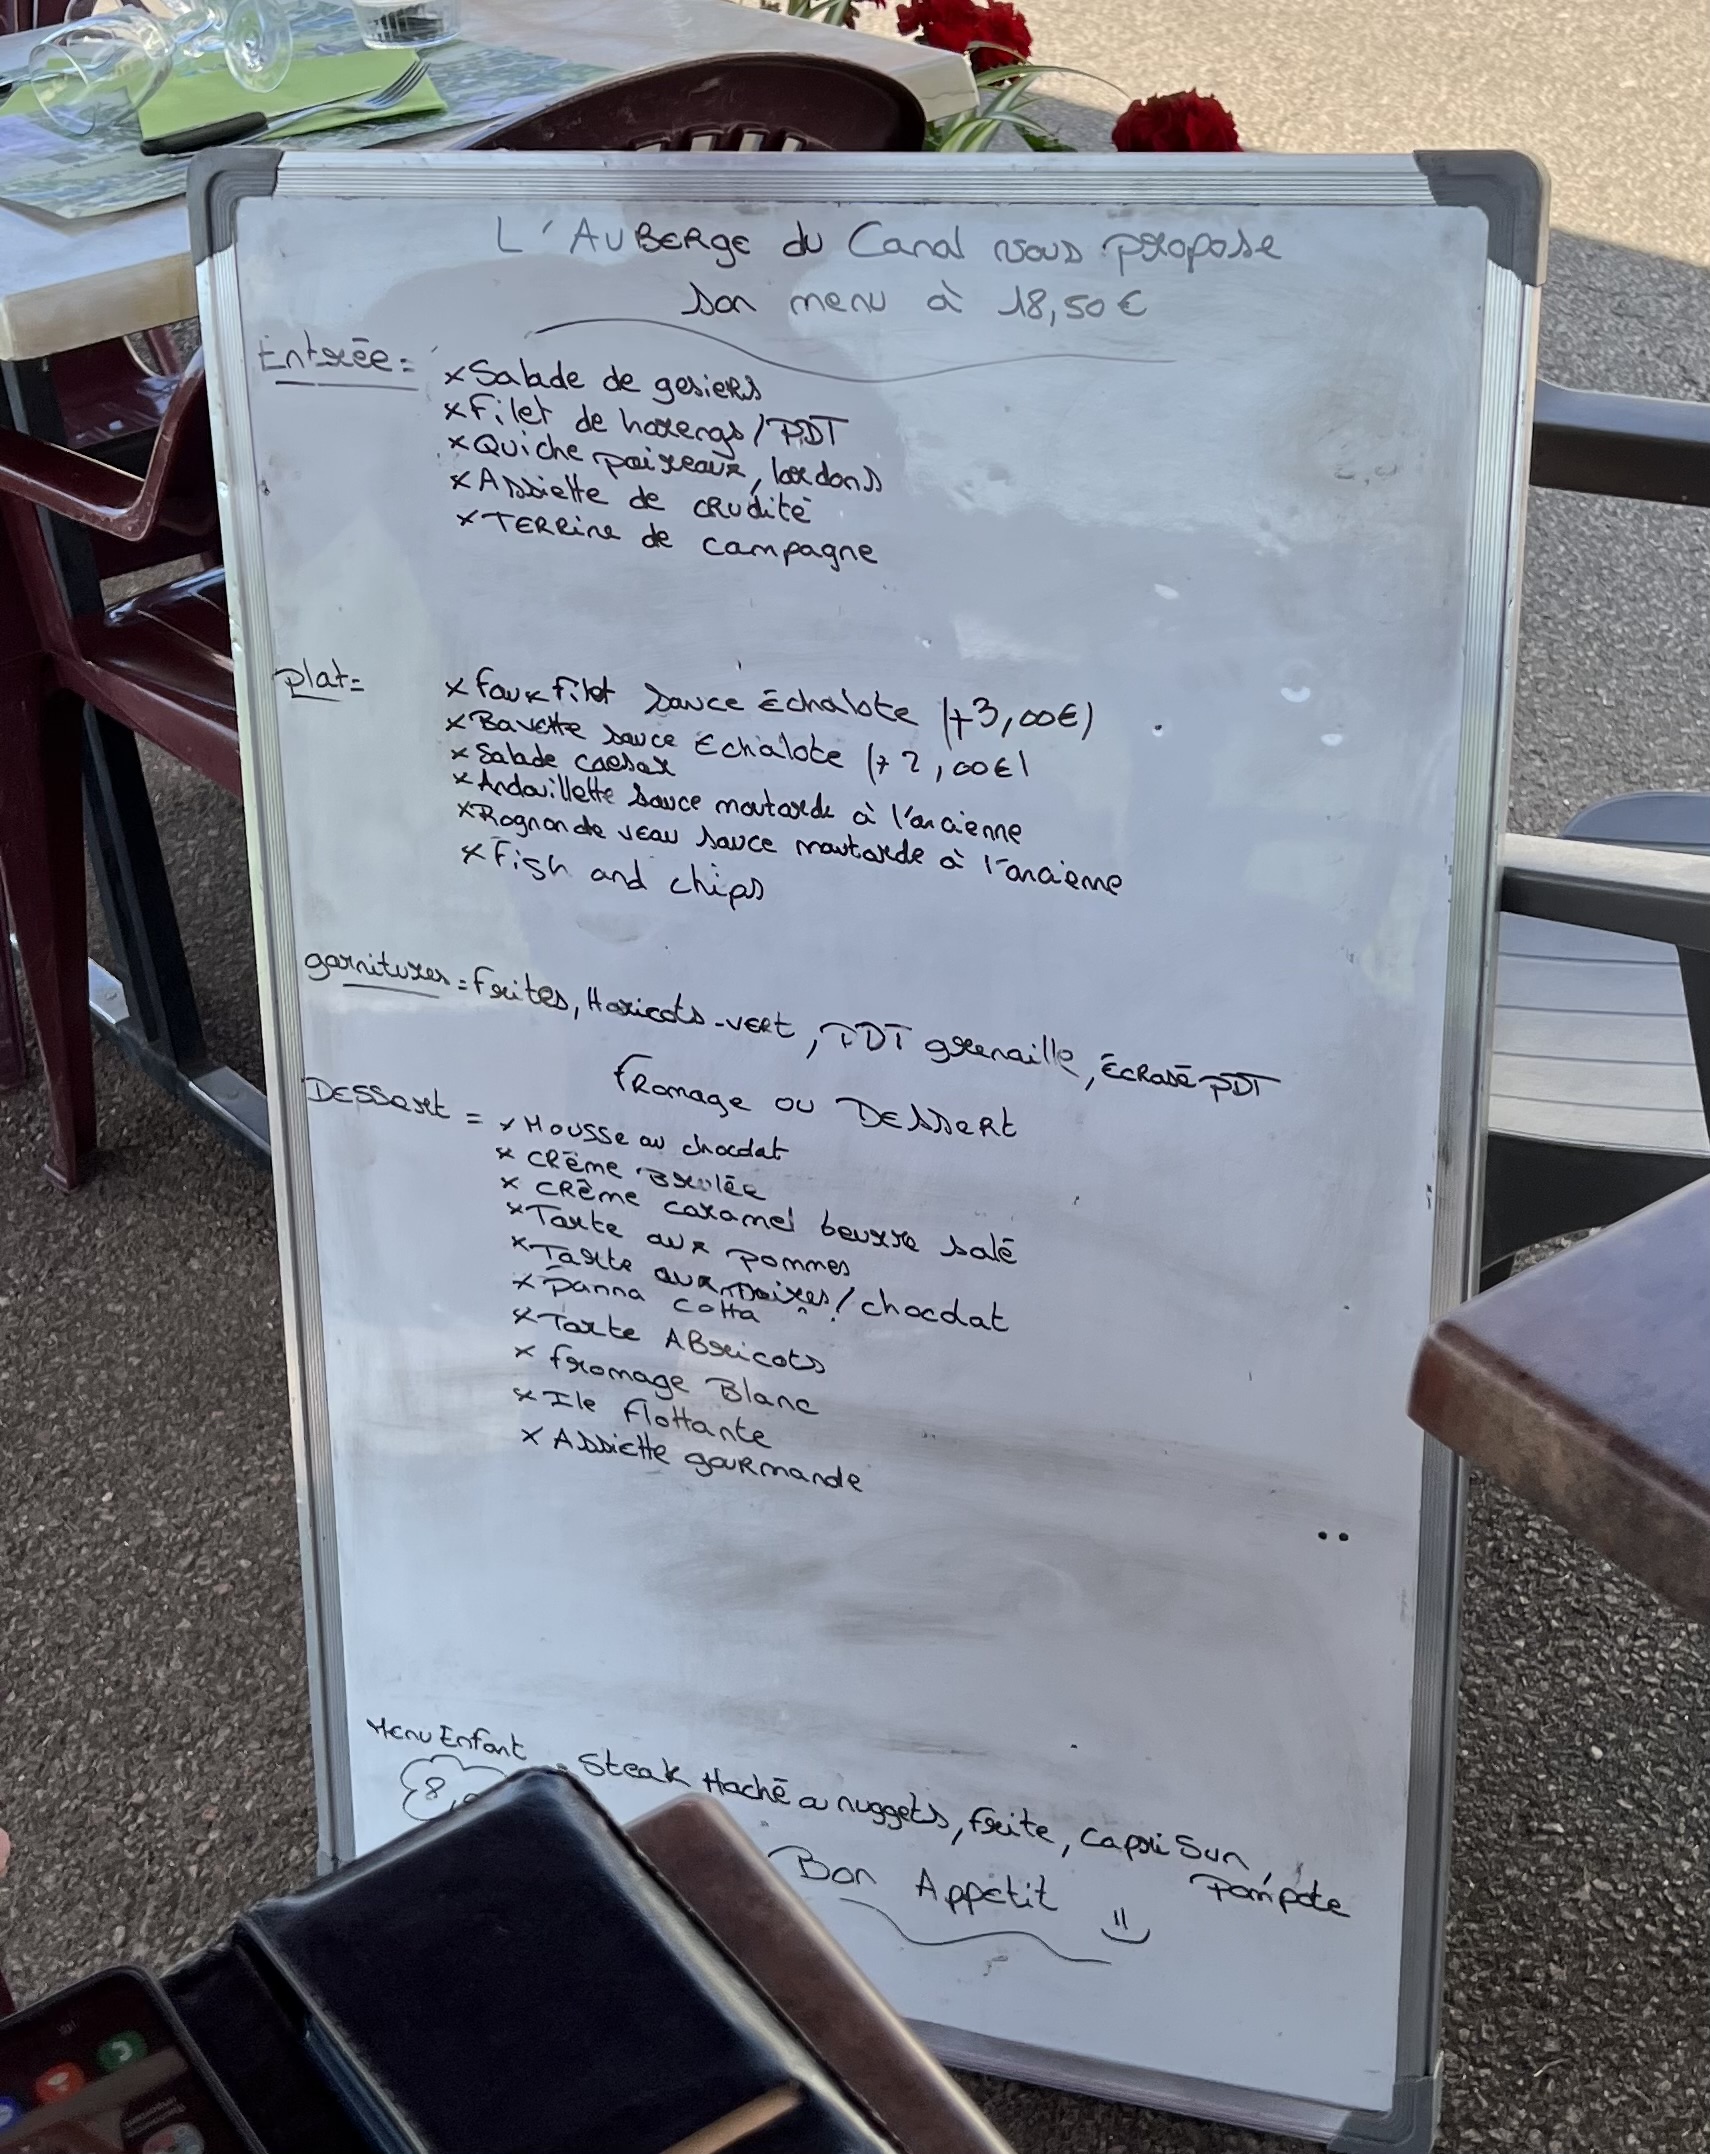 L'AUBERGE du Canal vous propose
son menu à 18,50€
Entrée =
x Salade de gesiers
x Filet de harengs / PDT
x Quiche poireaux, lardons
x Assiette de crudité
x Terrine de campagne
Plat =
x Faux filet sauce Échalote (+3,00€)
x Bavette sauce Echalote (+2,00€)
x Salade caesar
x Andouillette sauce moutarde à l'ancienne
x Rognon de veau sauce moutarde à l'ancienne
x Fish and chips
garnitures = Frites, Haricots-vert, PDT grenaille, Écrasé PDT
Fromage ou Dessert
Dessert =
x Mousse au chocolat
x Crème Brulée
x Crème caramel beurre salé
x Tarte aux pommes
x Tarte aux Poires / chocolat
x Panna cotta
x Tarte Abricots
x fromage Blanc
x Ile flottante
x Assiette gourmande
Menu Enfant
8,
Steak Haché ou nuggets, frite, capri Sun,
Pom'pote
Bon Appetit